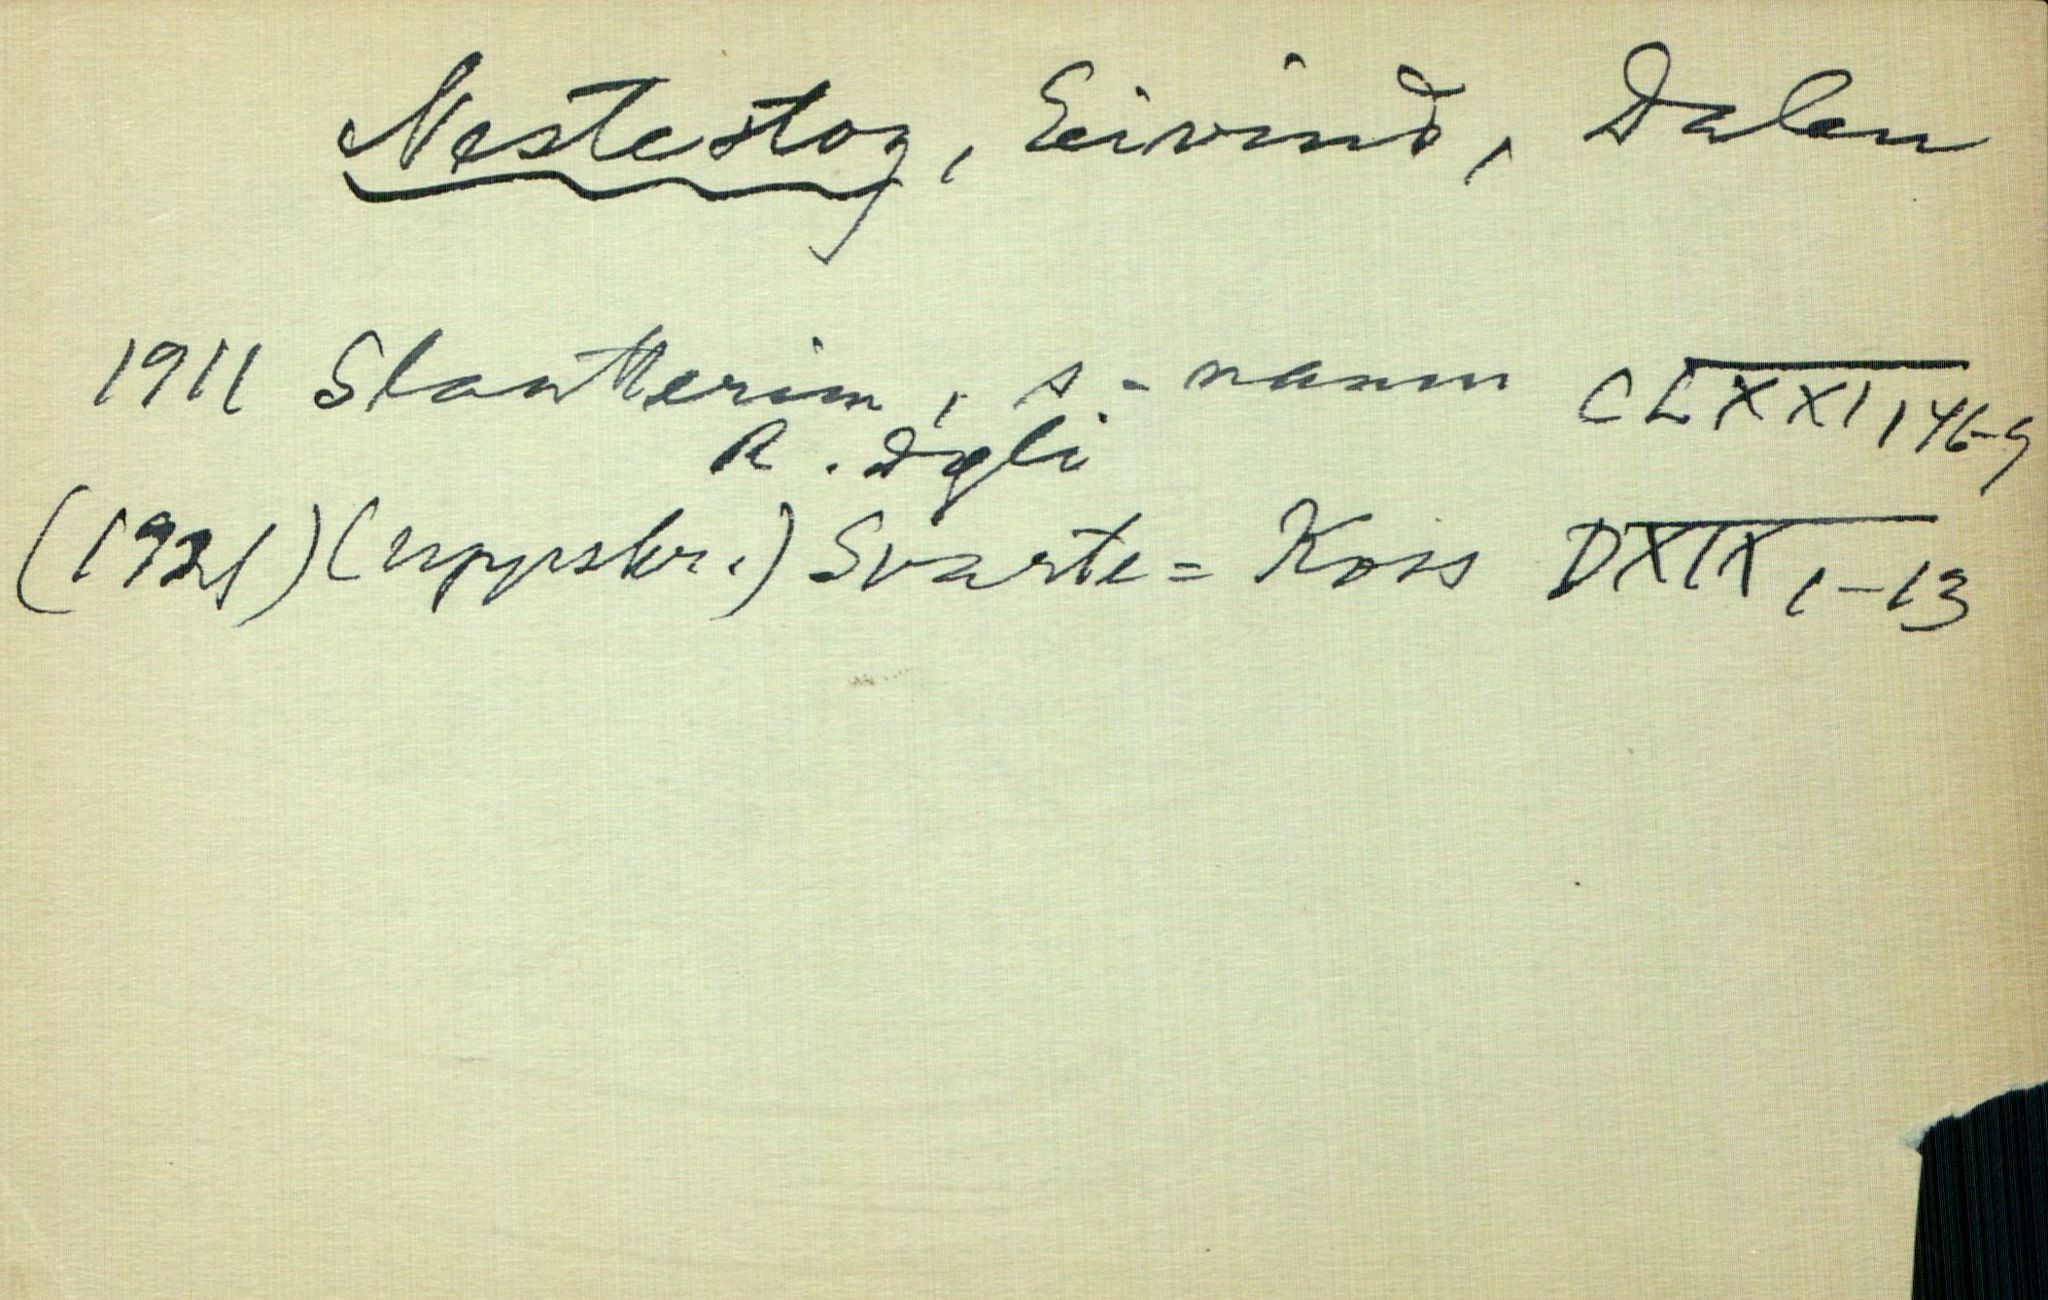 Nestestog, Eivind, Dalen
1911 Slåtterim, s.-namn CLXXI, 46-9
R. Dgli
(1921) (uppskr.) Svarte = Koss DXIX 1-13